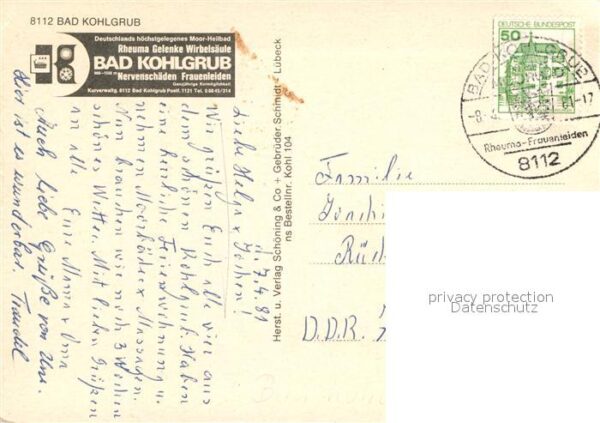 8112 BAD KOHLGRUB
Deutschlands höchstgelegenes Moor-Heilbad
Rheuma Gelenke Wirbelsäule
BAD KOHLGRUB
Nervenschäden Frauenleiden
Ganzjährige Kurmöglichkeit
Kurverwaltg. 8112 Bad Kohlgrub Postf. 1121 Tel. 08845/314
7.4.81
Liebe Helga + Jochen!
Wir grüßen Euch alle vier aus
dem schönen Kohlgrub. Haben
eine herrliche Ferienwohnung u.
nehmen Moorbäder + Massagen.
Nun brauchen wir noch 3 Wochen
schönes Wetter. Mit lieben Grüßen
an alle
Eure Mama + Oma
Auch liebe Grüße von Uns.
Hier ist es wunderbar. Traudel
Herst. u. Verlag Schöning & Co + Gebrüder Schmidt - Lübeck
ns Bestellnr. Kohl 104
DEUTSCHE BUNDESPOST
50
BAD KOHLGRUB
-8.4. 81-17
Rheuma-Frauenleiden
8112
Familie
D.D.R.
privacy protection
Datenschutz